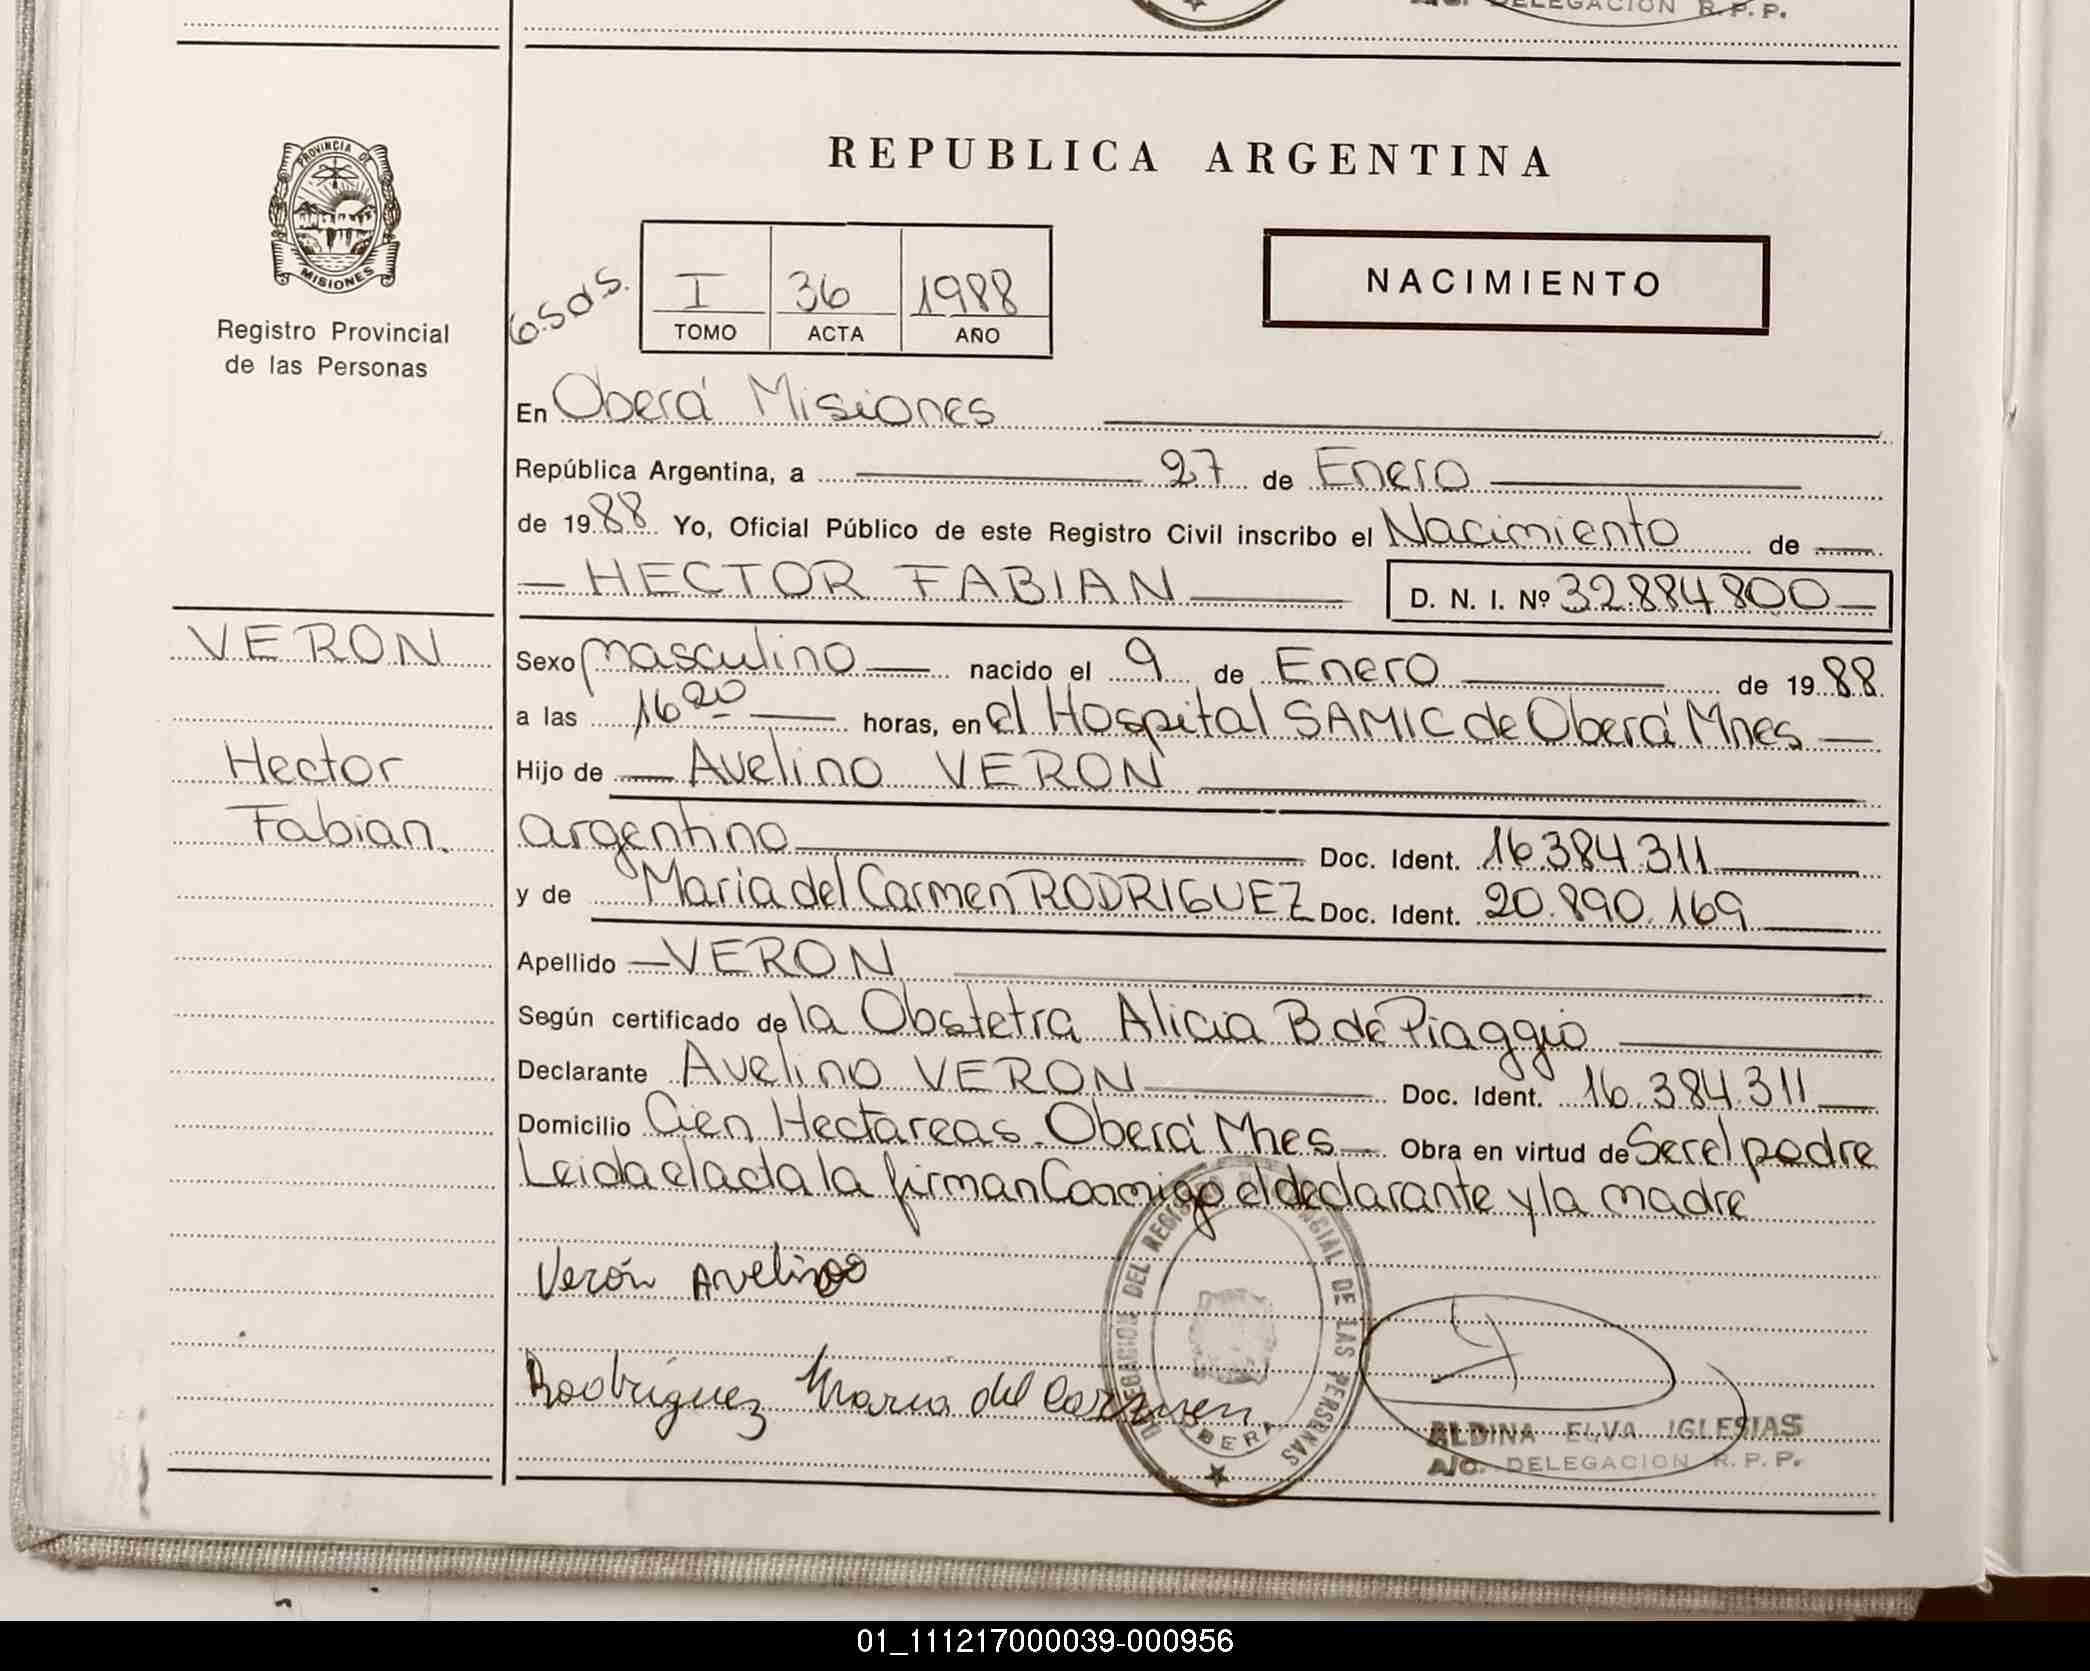 DELEGACION R. P. P.
REPUBLICA ARGENTINA
PROVINCIA DE
MISIONES
Registro Provincial
de las Personas
I 36 1988
TOMO ACTA AÑO
NACIMIENTO
En Oberá Misiones
República Argentina, a 27 de Enero
de 1988 Yo, Oficial Público de este Registro Civil inscribo el Nacimiento de
HECTOR FABIAN D. N. I. Nº 32.884.800
VERON
Sexo masculino nacido el 9 de Enero de 1988
a las 16 20 horas, en el Hospital SAMIC de Oberá Mnes
Hector
Hijo de Avelino VERON
Fabian.
argentino Doc. Ident. 16.384.311
y de Maria del Carmen RODRIGUEZ Doc. Ident. 20.890.169
Apellido VERON
Según certificado de la Obstetra Alicia B de Piaggio
Declarante Avelino VERON Doc. Ident. 16.384.311
Domicilio Cien Hectareas - Oberá Mnes Obra en virtud de Ser el padre
Leida el acta la firman Conmigo el declarante y la madre
Verón Avelino
Rodriguez Maria del Carmen
DELEGACION DEL REGISTRO PROVINCIAL DE LAS PERSONAS
OBERA
ALDINA ELVA IGLESIAS
A/C. DELEGACION R. P. P.
01_111217000039-000956